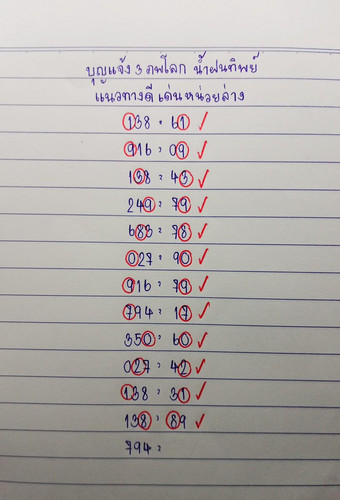 บุญแจ้ง 3 ภพโลก น้ำฝนทิพย์
แนวทางดีเด่นหน่วยล่าง
138 = 61 ✓
916 = 09 ✓
138 = 43 ✓
249 = 79 ✓
683 = 78 ✓
027 = 90 ✓
916 = 79 ✓
794 = 17 ✓
350 = 60 ✓
027 = 42 ✓
138 = 31 ✓
138 = 89 ✓
794 =